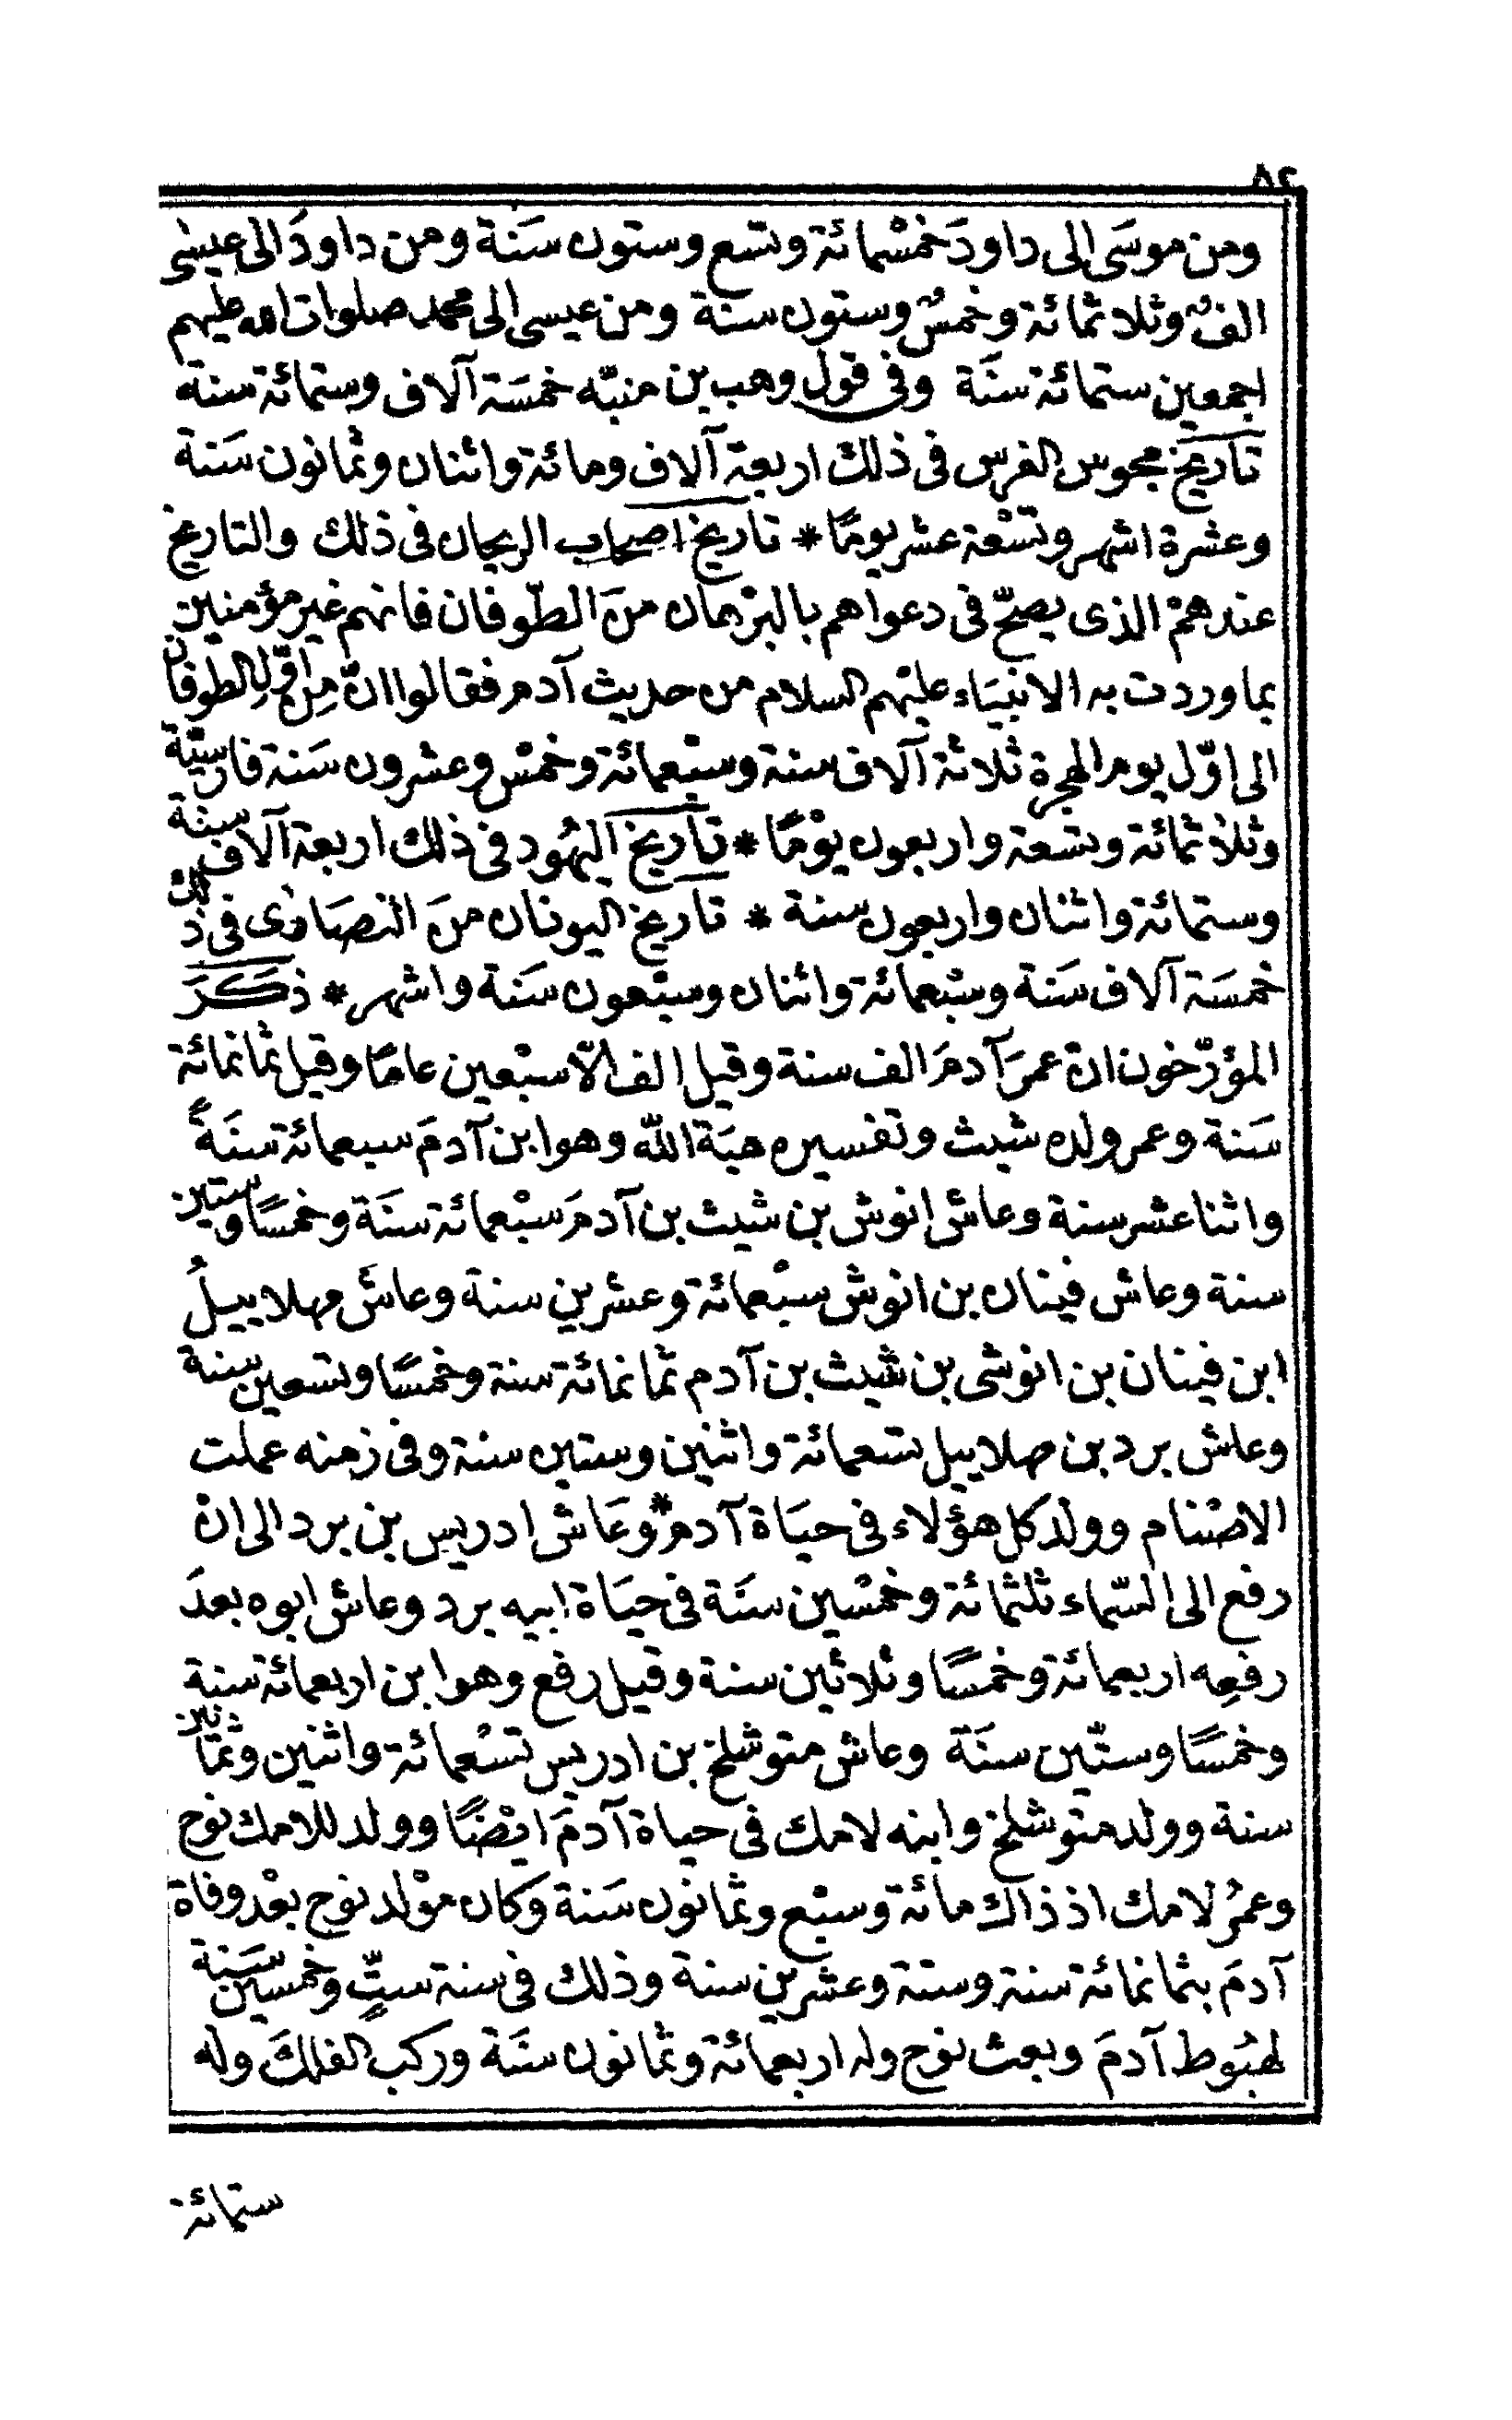 ٨٤
ومن موسَى الى داودَ خمسْمائة وتسع وستون سَنة ومن داودَ الى عيسٰى
الفٌ وثلاثمائة وخمسٌ وستون سنة ومن عيسى الى محمد صلوات الله عليهم
اجمعين ستمائة سنَة وفى قول وهب بن منبّه خمسَة آلاف وستمائة سنة
تاريخ مجوس الفرس فى ذلك اربعة آلاف ومائة واثنان وثمانون سَنة
وعشرة اشهر وتسْعة عشر يومًا * تاريخ اصحاب الريجان فى ذلك والتاريخ
عندهمْ الذى يصحّ فى دعواهم بالبرْهان منَ الطّوفان فانهم غير مؤمنين
بما وردت به الانبيَاء عليْهم السلام من حديث آدم فقالوا انّ مِن اوّل الطوفان
الى اوّل يوم الهجرة ثلاثة آلاف سنة وسبْعمائة وخمسْ وعشرون سَنة فارسيّة
وثلاثمائة وتسعة واربعون يوْمًا * تاريخ اليهُود فى ذلك اربعة آلاف سنة
وستمائة واثنان واربعون سنة * تاريخ اليونان منَ النصَارٰى فى ذلك
خمسَة آلاف سَنة وسبْعمائة واثنان وسبْعون سَنة واشهر * ذكَرَ
المؤرّخون انّ عمرَ آدمَ الف سنة وقيل الف الّا سبْعين عامًا وقيل ثمانمائة
سَنة وعمر ولده شيث وتفسيره هبَة الله وهو ابن آدمَ سبعمائة سنَةً
واثنا عشر سنة وعاش انوش بن شيث بن آدمَ سبْعمائة سنَة وخمسًا وستين
سنة وعاش فينان بن انوش سبْعمائة وعشرين سنة وعاشَ مهلاييلُ
ابن فينان بن انوشى بن شيث بن آدم ثمانمائة سنة وخمسًا وتسعين سنة
وعاش برد بن مهلاييل تسعمائة واثنين وستين سنة وفى زمنه عملت
الاصْنام وولد كل هؤلاء فى حيَاة آدم * وعَاش ادريس بن برد الى انْ
رفع الى السّماء ثلثمائة وخمسْين سنَة فى حيَاة ابيه برد وعاش ابوه بعدَ
رفعِه اربعمائة وخمسًا وثلاثين سنة وقيل رفع وهو ابن اربعمائة سنة
وخمسًا وستّين سنَة وعاش متوشلخ بن ادريس تسْعمائة واثنين وثمانين
سنة وولد متوشلخ وابنه لامك فى حياة آدمَ ايْضًا وولد للامك نوح
وعمرُ لامك اذ ذاك مائة وسبْع وثمانون سَنة وكان موْلد نوح بعْد وفاة
آدمَ بثمانمائة سنة وستة وعشرين سنة وذلك فى سنة ستٍّ وخمسين سَنة
لهبُوط آدمَ وبعث نوح وله اربعمائة وثمانون سنَة وركب الفلكَ وله
ستمائة